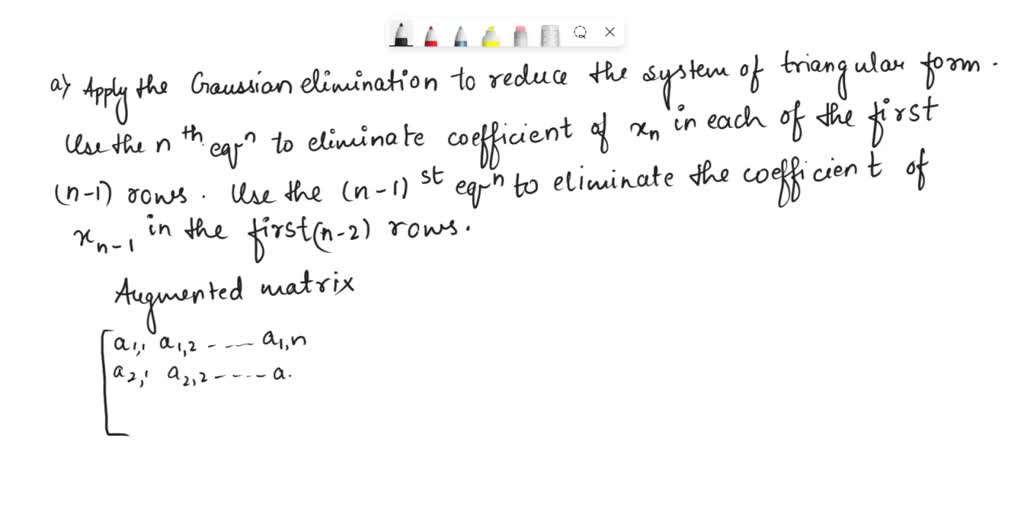 a) Apply the Gaussian elimination to reduce the system of triangular form.
Use the n th eqn to eliminate coefficient of xn in each of the first
(n-1) rows. Use the (n-1) st eqn to eliminate the coefficient of
xn-1 in the first (n-2) rows.
Augmented matrix
a1,1 a1,2 ---- a1,n
a2,1 a2,2 ---- a.